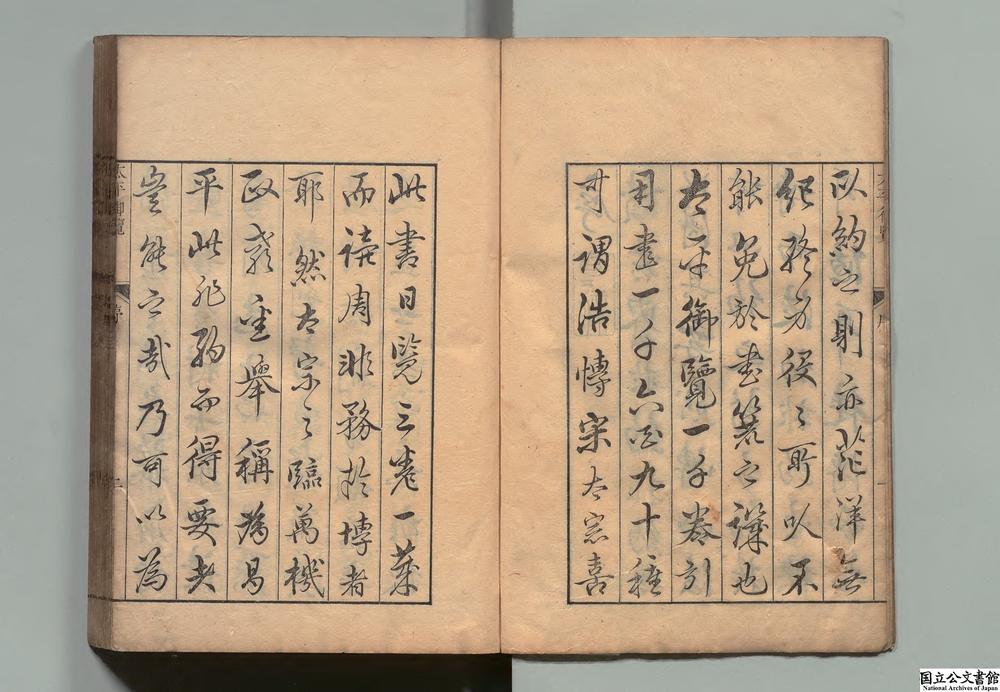 以約之則亦茫洋無
紀疲身役之所以不
能免於書簏之譏也
太平御覽一千卷引
用書一千六百九十種
可謂浩博宋太宗喜
此書日覽三卷一葉
而讀周非務於博者
耶然太宗之臨萬機
政教畢舉稱為昌
平此非約而得要者
豈能之哉乃可以為
太平御覽
序
国立公文書館
National Archives of Japan